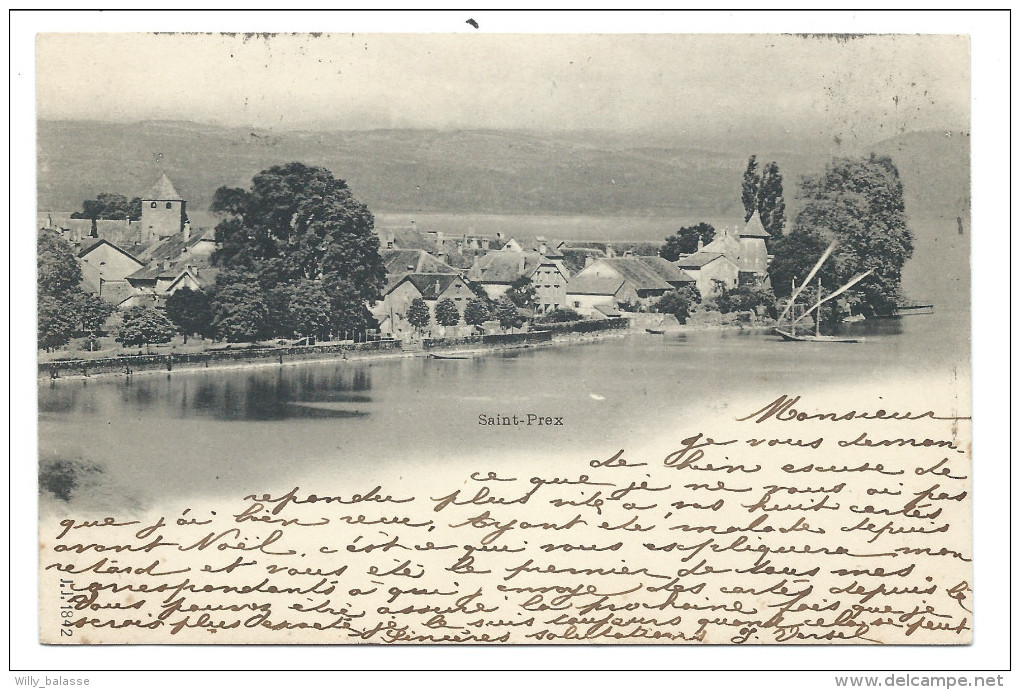 Saint-Prex
Monsieur
je vous deman-
de bien escuse de
ce que je ne vous ai pas
repondu plus vite a vos huit certes
que j'ai bien recu, Ayant eté malade depuis
avant Noël, c'est ce qui vous esxpliquera mon
retard et vous éte le premier de tous mes
correspondants à qui j'envoye des certes depuis la
Vous pouvez étre assuré la prochaine fois que je
serois plus exact, je le suis toujours quand cela se peut
Sincères salutations J. Versel
J.J. 1842
Willy_balasse
www.delcampe.net